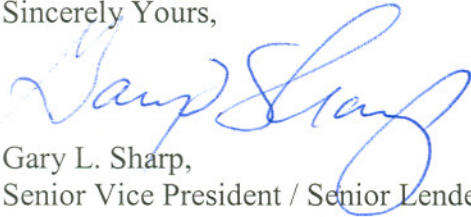 Sincerely Yours,
Gary Sharp
Gary L. Sharp,
Senior Vice President / Senior Lende